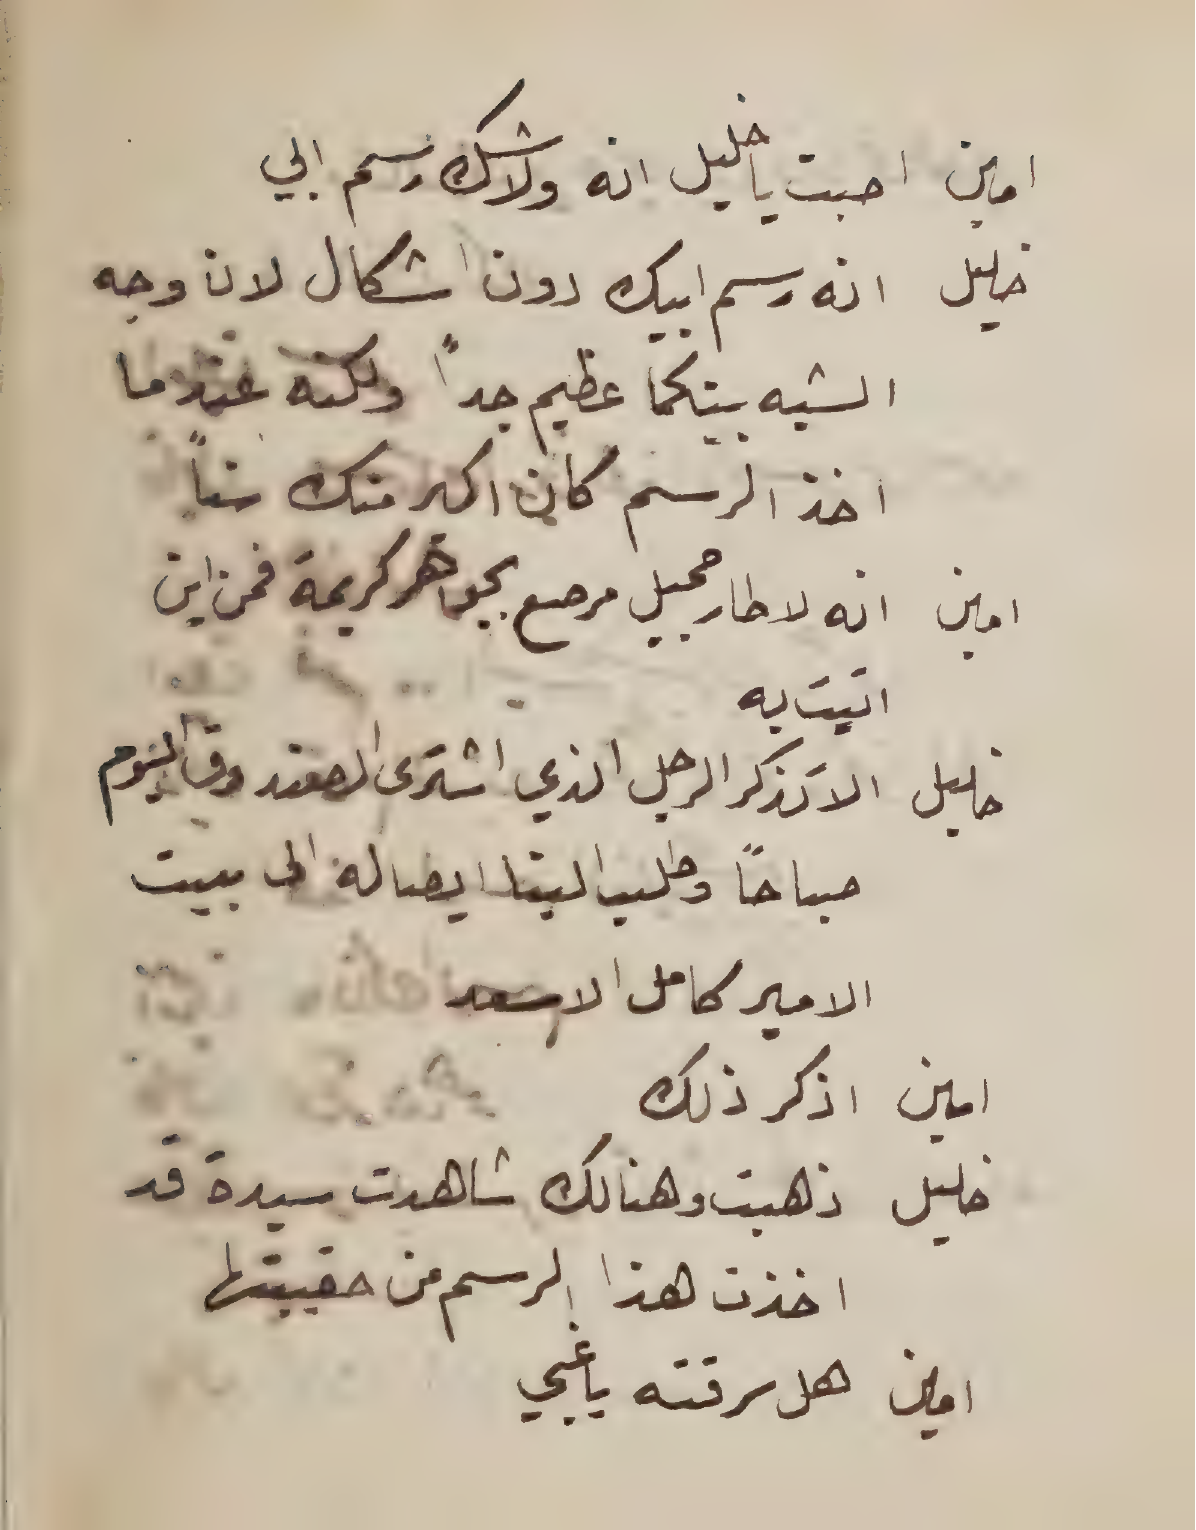 امين احبت يا خليل انه ولا شك رسم ابي
خليل انه رسم ابيك دون اشكال لان وجه
الشبه بينكما عظيم جداً ولكنه عندما
اخذ الرسم كان اكبر منك سناً
امين انه لاطار جميل مرصع بجواهر كريمة فمن اين
اتيت به
خليل الا تذكر الرجل الذي اشترى الصندوق اليوم
صباحاً وطلب الينا ايصاله الى بيت
الامير كامل الاسعد
امين اذكر ذلك
خليل ذهبت وهنالك شاهدت سيدة قد
اخذت هذا الرسم من حقيبتها
امين هل سرقته يا غبي